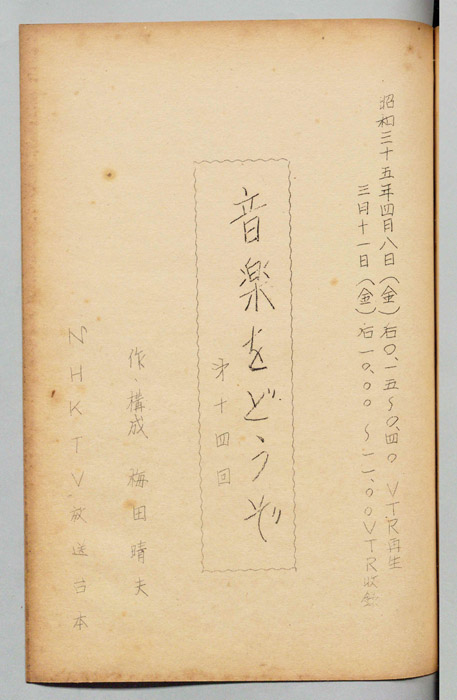 昭和三十五年四月八日(金)右〇.一五〜〇.四〇 VTR再生
三月十一日(金)右一〇.〇〇〜一一.〇〇VTR収録
音楽をどうぞ
第十四回
作・構成 梅田晴夫
NHKTV放送台本